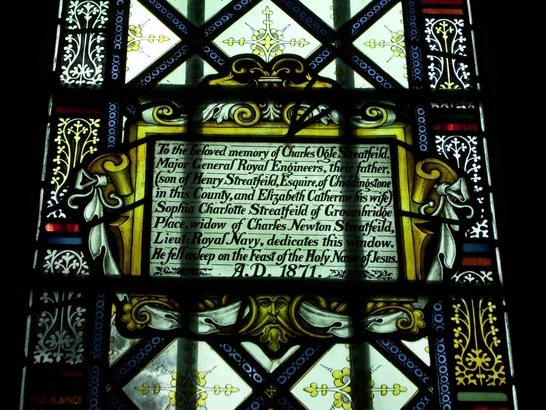 To the beloved memory of Charles Ogle Streatfeild,
Major General Royal Engineers, their father,
(son of Henry Streatfeild, Esquire, of Chiddingstone
in this County, and Elizabeth Catherine his wife)
Sophia Charlotte Streatfeild of Groombridge
Place, widow of Charles Newton Streatfeild,
Lieut: Royal Navy, dedicates this window.
He fell asleep on the Feast of the Holy Name of Jesus.
A.D. 1871.